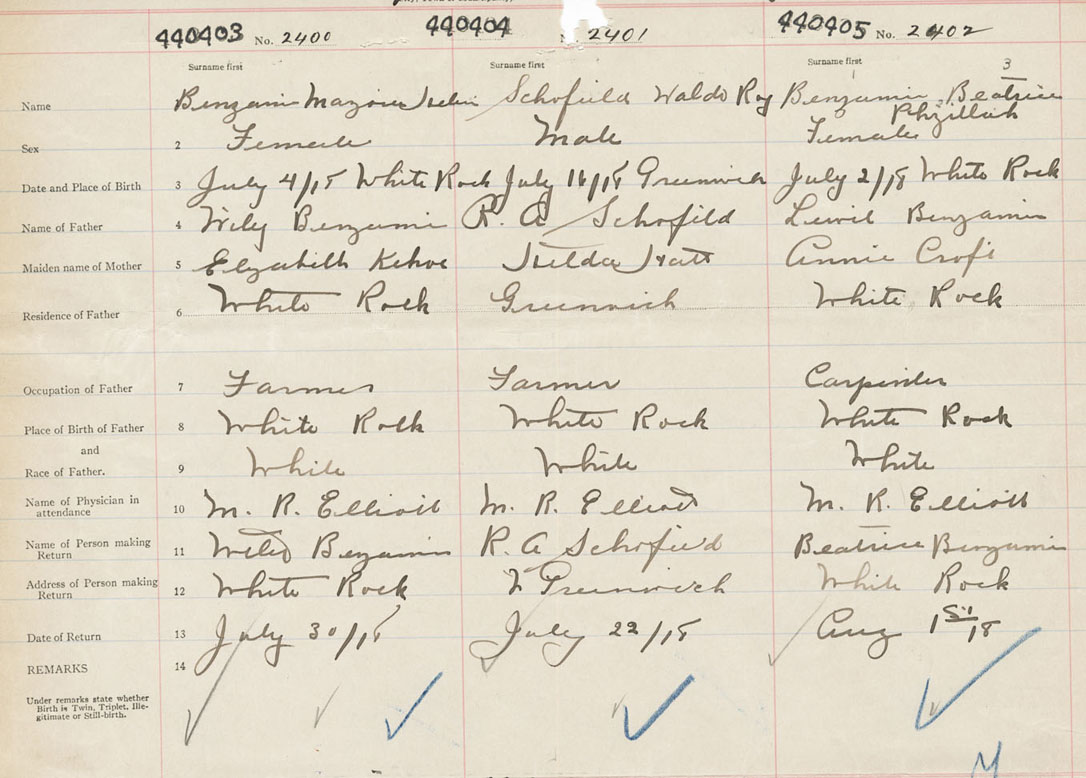 440403 No. 2400 440404 No. 2401 440405 No. 2402
Surname first Surname first Surname first
3
Name Benjamin Schofield Waldo Roy Benjamin, Beatrice
Phyzillah
Sex 2 Female Male Female
Date and Place of Birth 3 July 4/18 White Rock July 16/18 Greenwich July 2/18 White Rock
Name of Father 4 Wiley Benjamin R. A Schofield Lewis Benjamin
Maiden name of Mother 5 Elizabeth Kehoe Annie Croft
Residence of Father 6 White Rock Greenwich White Rock
Occupation of Father 7 Farmer Farmer Carpenter
Place of Birth of Father 8 White Rock White Rock White Rock
and
Race of Father. 9 White White White
Name of Physician in
attendance 10 M. R. Elliott M. R. Elliott M. R. Elliott
Name of Person making
Return 11 Wiley Benjamin R. A Schofield Beatrice Benjamin
Address of Person making
Return 12 White Rock Greenwich White Rock
Date of Return 13 July 30/18 July 22/18 Aug 1st/18
REMARKS 14
Under remarks state whether
Birth is Twin, Triplet, Ille-
gitimate or Still-birth.